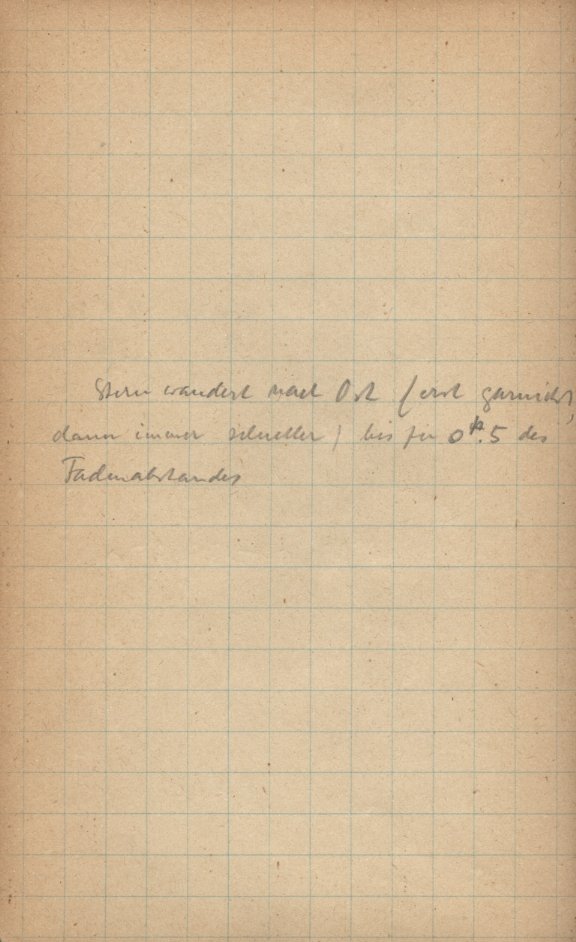 Stern wandert nach Ost (erst garnicht,
dann immer schneller) bis zu 0ᵖ.5 des
Fadenabstandes